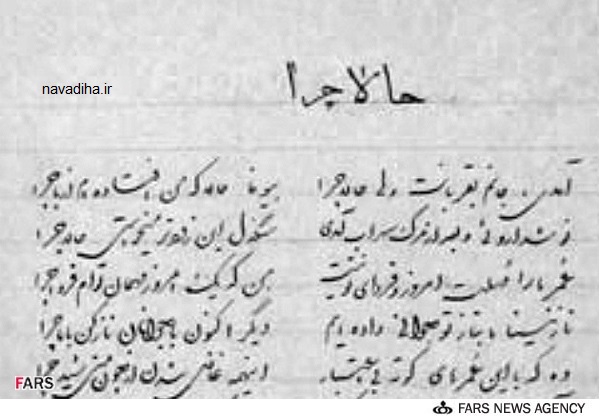 navadiha.ir
حالا چرا
آمدی، جانم بقربانت ولی حالا چرا بیوفا حالا که من افتاده ام از پا چرا
نوشداروئی و بعد از مرگ سهراب آمدی سنگدل این زودتر میخواستی حالا چرا
عمر ما را مهلت امروز و فردای تو نیست من که یک امروز مهمان توام فردا چرا
نازنینا ما بناز تو جوانی داده ایم دیگر اکنون با جوانان ناز کن با ما چرا
وه که با این عمرهای کوته بی اعتبار اینهمه غافل شدن از چون منی شیدا چرا
FARS
FARS NEWS AGENCY